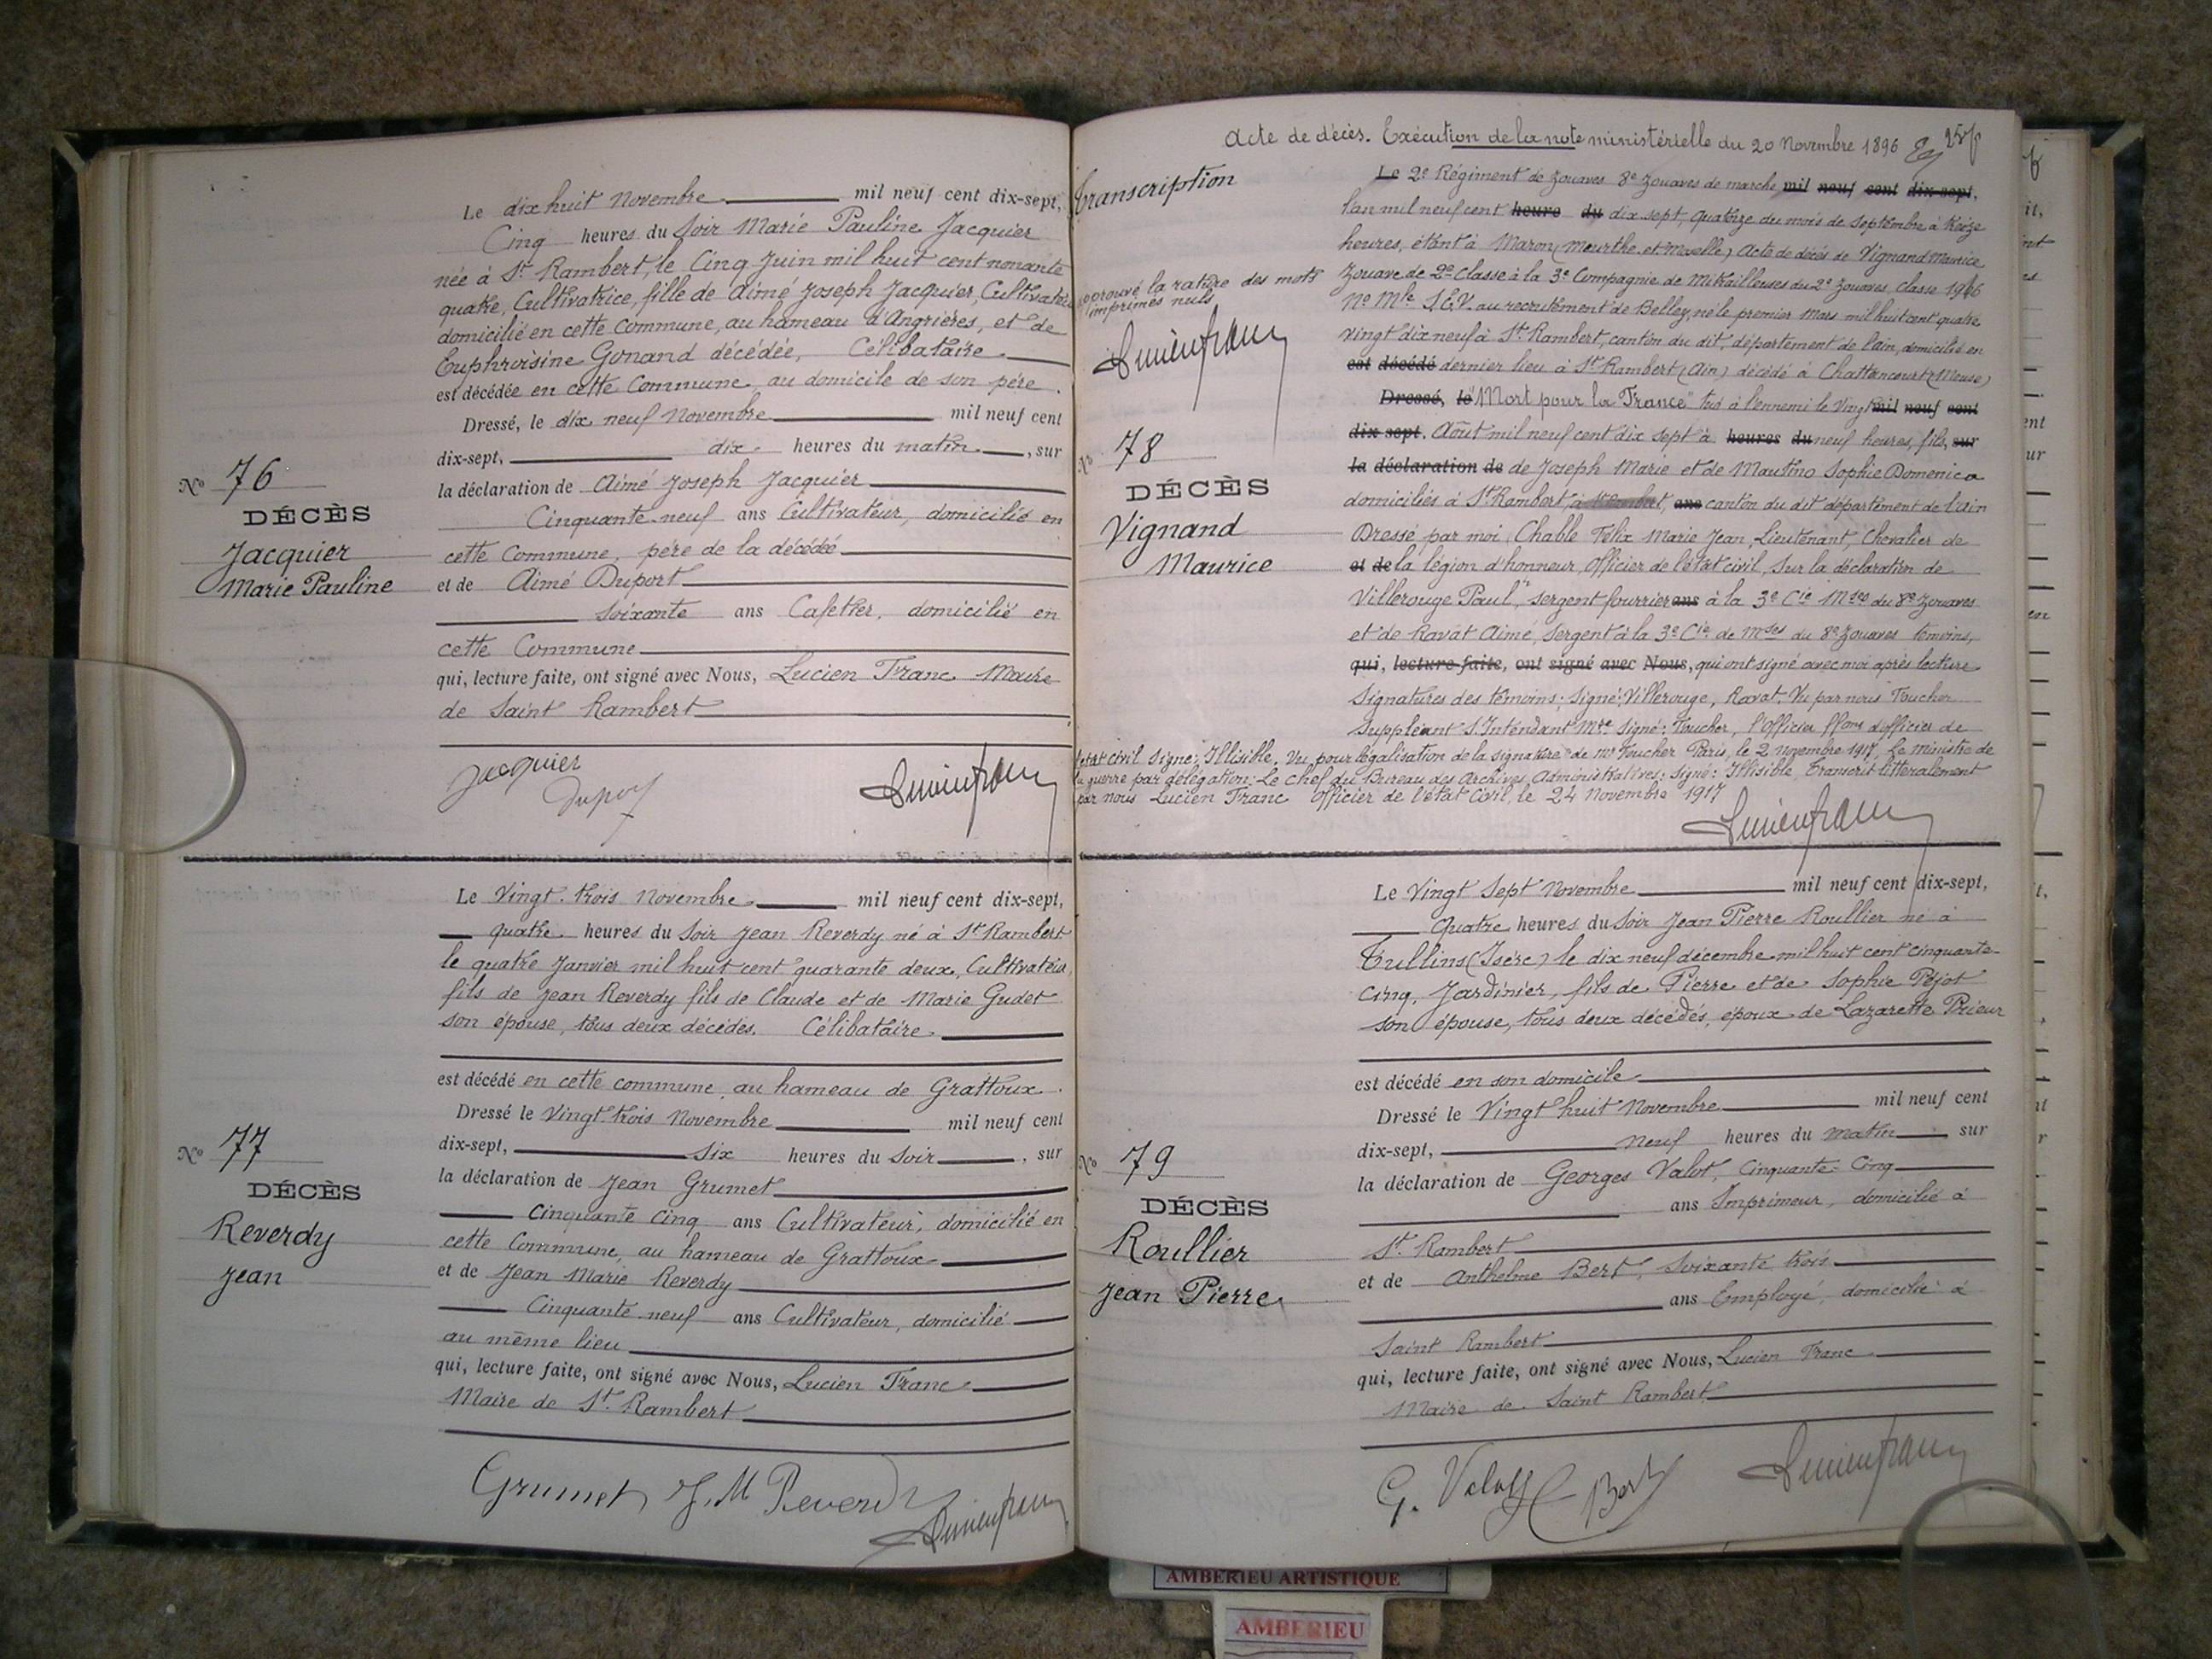 Le dix huit Novembre mil neuf cent dix-sept,
Cinq heures du Soir Marie Pauline Jacquier
née à St Rambert, le Cinq Juin mil huit cent nonante
quatre, Cultivatrice, fille de Aimé Joseph Jacquier, Cultivateur
domicilié en cette Commune, au hameau d'Angrières, et de
Euphroisine Gonand décédée, Célibataire
est décédée en cette Commune, au domicile de son père.
Dressé, le dix neuf Novembre mil neuf cent
dix-sept, dix heures du matin, sur
la déclaration de Aimé Joseph Jacquier
Cinquante-neuf ans Cultivateur, domicilié en
cette Commune, père de la décédée
et de Aimé Duport
soixante ans Cafetier, domicilié en
cette Commune
qui, lecture faite, ont signé avec Nous, Lucien Franc Maire
de Saint Rambert
No 76
DÉCÈS
Jacquier
Marie Pauline
Jacquier
Duport
Lucien franc
Le Vingt-trois Novembre mil neuf cent dix-sept,
quatre heures du Soir Jean Reverdy né à St Rambert
le quatre Janvier mil huit cent quarante deux, Cultivateur,
fils de Jean Reverdy fils de Claude et de Marie Gudet
son épouse, tous deux décédés. Célibataire
est décédé en cette commune, au hameau de Grattoux.
Dressé le Vingt-trois Novembre mil neuf cent
dix-sept, six heures du Soir, sur
la déclaration de Jean Grumet
Cinquante cinq ans Cultivateur, domicilié en
cette Commune, au hameau de Grattoux
et de Jean Marie Reverdy
Cinquante-neuf ans Cultivateur, domicilié
au même lieu
qui, lecture faite, ont signé avec Nous, Lucien Franc
Maire de St. Rambert
No 77
DÉCÈS
Reverdy
Jean
Grumet J. M Reverdy
Lucien franc
Acte de décès. Exécution de la note ministérielle du 20 Novembre 1896
Transcription
Le 2e Régiment de Zouaves 8e Zouaves de marche mil neuf cent dix-sept,
l'an mil neuf cent heure du dix sept, quatorze du mois de Septembre à treize
heures, étant à Maron (Meurthe et Moselle) Acte de décès de Vignand Maurice
Zouave de 2e Classe à la 3e Compagnie de Mitrailleuses du 2e Zouaves Classe 1916
No Mle S.E.V. au recrutement de Belley, né le premier Mars mil huit cent quatre
vingt dix neuf à St Rambert, canton du dit, département de l'ain, domicilié en
est décédé dernier lieu à St Rambert (Ain) décédé à Chattancourt (Meuse)
Dressé, le "Mort pour la France" tué à l'ennemi le Vingt mil neuf cent
dix-sept. Août mil neuf cent dix sept à heures du neuf heures, fils, sur
la déclaration de de Joseph Marie et de Mautino Sophie Domenica
domiciliés à St Rambert, ans canton du dit département de l'ain
Dressé par moi, Chable Félix Marie Jean, Lieutenant, Chevalier de
et de la légion d'honneur, Officier de l'état civil, Sur la déclaration de
Villerouge Paul, Sergent fourrier ans à la 3e Cie Mses du 8e Zouaves
et de Ravat Aimé, Sergent à la 3e Cie de mses du 8e Zouaves témoins,
qui, lecture faite, ont signé avec Nous, qui ont signé avec moi après lecture
Signatures des témoins; Signé; Villerouge, Ravat. Vu par nous Foucher
Suppléant S. Intendant Mre Signé: Foucher, l'Officier ffons d'officier de
l'état civil signé: Illisible, Vu pour légalisation de la signature de Mr Foucher Paris, le 2 novembre 1917, Le ministre de
la guerre par délégation: Le chef du Bureau des Archives Administratives: Signé: Illisible, Transcrit littéralement
par nous Lucien Franc Officier de l'état Civil, le 24 Novembre 1917
approuvé la rature des mots
imprimés nuls
Lucien franc
No 78
DÉCÈS
Vignand
Maurice
Lucien franc
Le Vingt Sept Novembre mil neuf cent dix-sept,
Quatre heures du Soir Jean Pierre Roullier né à
Tullins (Isère) le dix neuf décembre mil huit cent cinquante-
cinq, Jardinier, fils de Pierre et de Sophie Péjot
son épouse, tous deux décédés, époux de Lazarette Prieur
est décédé en son domicile
Dressé le Vingt huit Novembre mil neuf cent
dix-sept, neuf heures du matin sur
la déclaration de Georges Valot, Cinquante-Cinq
ans Imprimeur, domicilié à
St. Rambert
et de Anthelme Bert, Soixante trois
ans Employé, domicilié à
Saint Rambert
qui, lecture faite, ont signé avec Nous, Lucien Franc
Maire de Saint Rambert
No 79
DÉCÈS
Roullier
Jean Pierre
G. Valot Bert
Lucien franc
AMBERIEU ARTISTIQUE
AMBERIEU